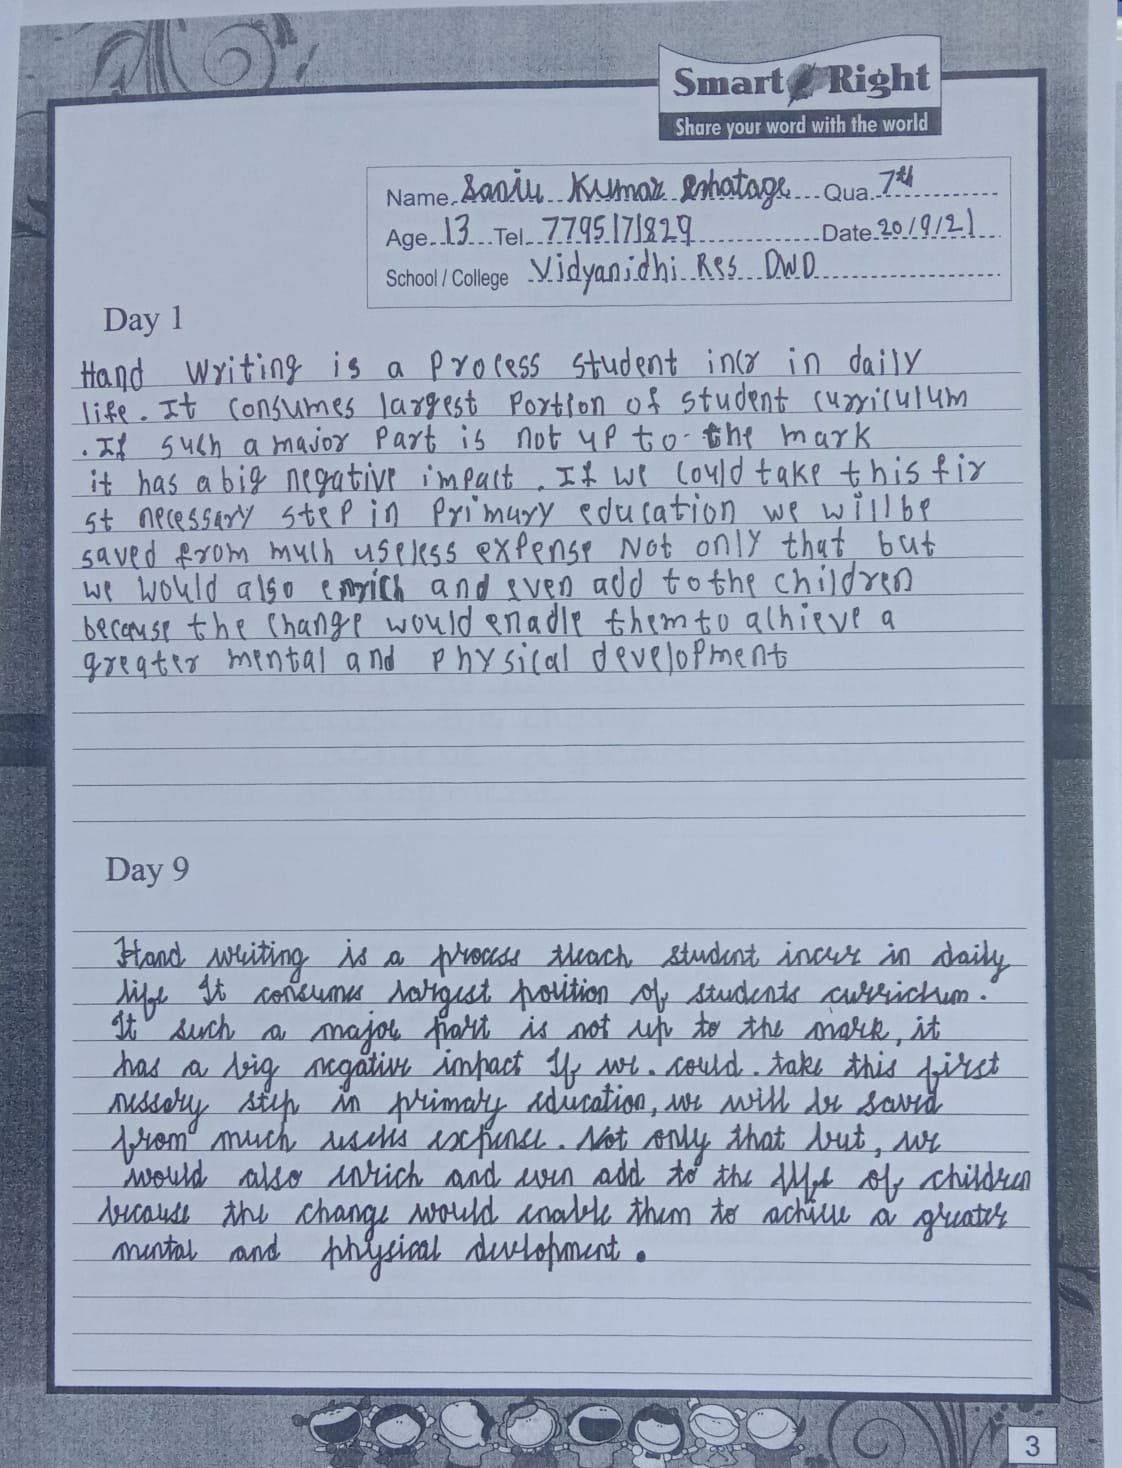 Smart Right
Share your word with the world
Name Sanju Kumar Qua. 7th
Age 13 Tel 7795171829 Date 20/9/21
School / College Vidyanidhi Res DWD
Day 1
Hand writing is a process student incr in daily
life. It consumes largest portion of student curriculum
. If such a major part is not up to the mark
it has a big negative impact. If we could take this fir
st necessary step in primary education we will be
saved from much useless expense Not only that but
we would also enrich and even add to the children
because the change would enadle them to achieve a
greater mental and physical development
Day 9
Hand writing is a process theach student incur in daily
life It consumes largest portion of students curriclum.
It such a major part is not up to the mark, it
has a big negative impact If we. could. take this first
nessary step in primary education, we will be saved
from much useless expense. Not only that but, we
would also inrich and even add to the life of children
because the change would enable them to achieve a greater
mental and physical development.
3